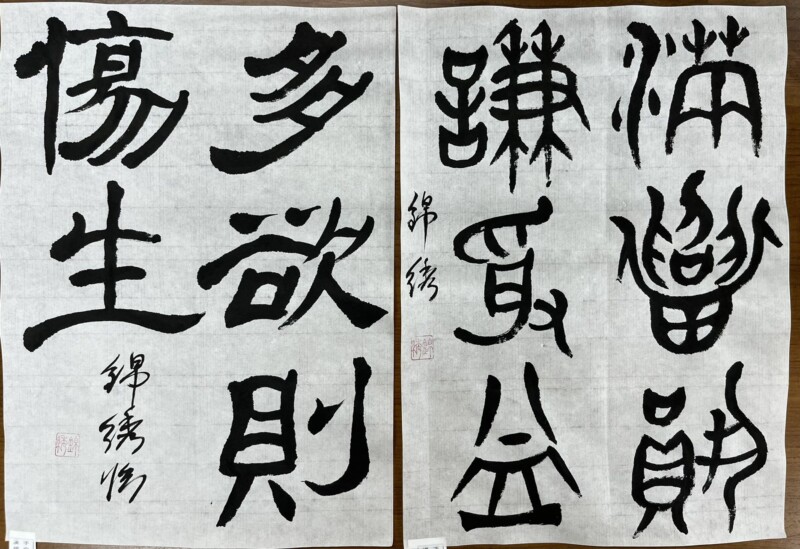 滿招損
謙受益
錦綉
多欲則
傷生
錦綉臨